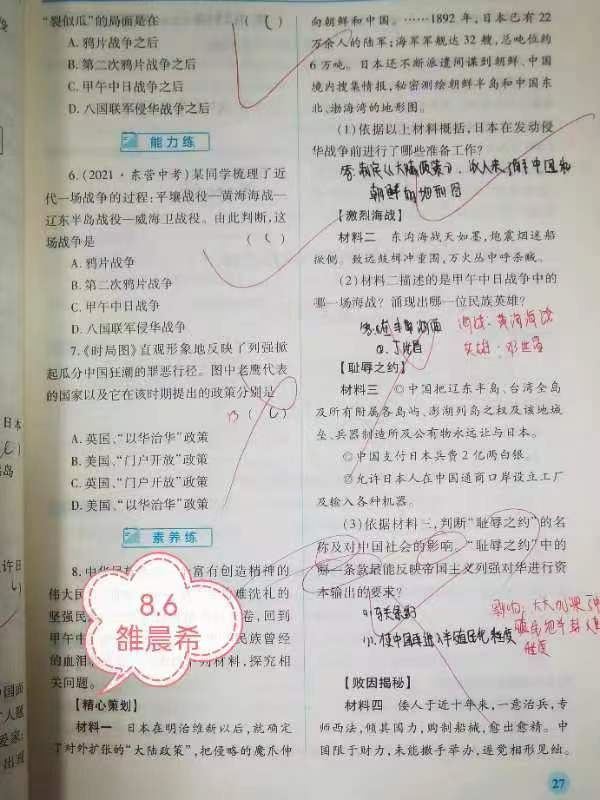 "裂似瓜"的局面是在 ( C )
A. 鸦片战争之后
B. 第二次鸦片战争之后
C. 甲午中日战争之后
D. 八国联军侵华战争之后
能力练
6. (2021·东营中考)某同学梳理了近
代一场战争的过程:平壤战役—黄海海战—
辽东半岛战役—威海卫战役。由此判断,这
场战争是 ( C )
A. 鸦片战争
B. 第二次鸦片战争
C. 甲午中日战争
D. 八国联军侵华战争
7.《时局图》直观形象地反映了列强掀
起瓜分中国狂潮的罪恶行径。图中老鹰代表
的国家以及它在该时期提出的政策分别是
B ( C )
A. 英国、"以华治华"政策
B. 美国、"门户开放"政策
C. 英国、"门户开放"政策
D. 美国、"以华治华"政策
素养练
富有创造精神的
伟大民
难洗礼的
坚强民
卷,回到
甲午中
民族曾经
的血泪
材料,探究相
关问题。
8.6
雒晨希
【精心策划】
材料一 日本在明治维新以后,就确定
了对外扩张的"大陆政策",把侵略的魔爪伸
向朝鲜和中国。……1892年,日本已有22
万余人的陆军;海军军舰达32艘,总吨位约
6万吨。日本还不断派遣间谍到朝鲜、中国
境内搜集情报,秘密测绘朝鲜半岛和中国东
北、渤海湾的地形图。
(1)依据以上材料概括,日本在发动侵
华战争前进行了哪些准备工作?
朝鲜的地形图
【激烈海战】
材料二 东沟海战天如墨,地震烟迷船
掀侧。致远鼓楫冲重围,万火丛中呼杀贼。
(2)材料二描述的是甲午中日战争中的
哪一场海战?涌现出哪一位民族英雄?
海战:黄海海战
英雄:邓世昌
【耻辱之约】
材料三 ◎中国把辽东半岛、台湾全岛
及所有附属各岛屿、澎湖列岛之权及该地城
垒、兵器制造所及公有物永远让与日本。
◎中国支付日本兵费2亿两白银。
◎允许日本人在中国通商口岸设立工厂
及输入各种机器。
(3)依据材料三,判断"耻辱之约"的名
称及对中国社会的影响。"耻辱之约"中的
哪一条款最能反映帝国主义列强对华进行资
本输出的要求?
马关条约
影响:大大加深
程度
【败因揭秘】
材料四 倭人于近十年来,一意治兵,专
师西法,倾其国力,购制船械,愈出愈精。中
国限于财力,未能撒手举办,遂觉相形见绌。
27